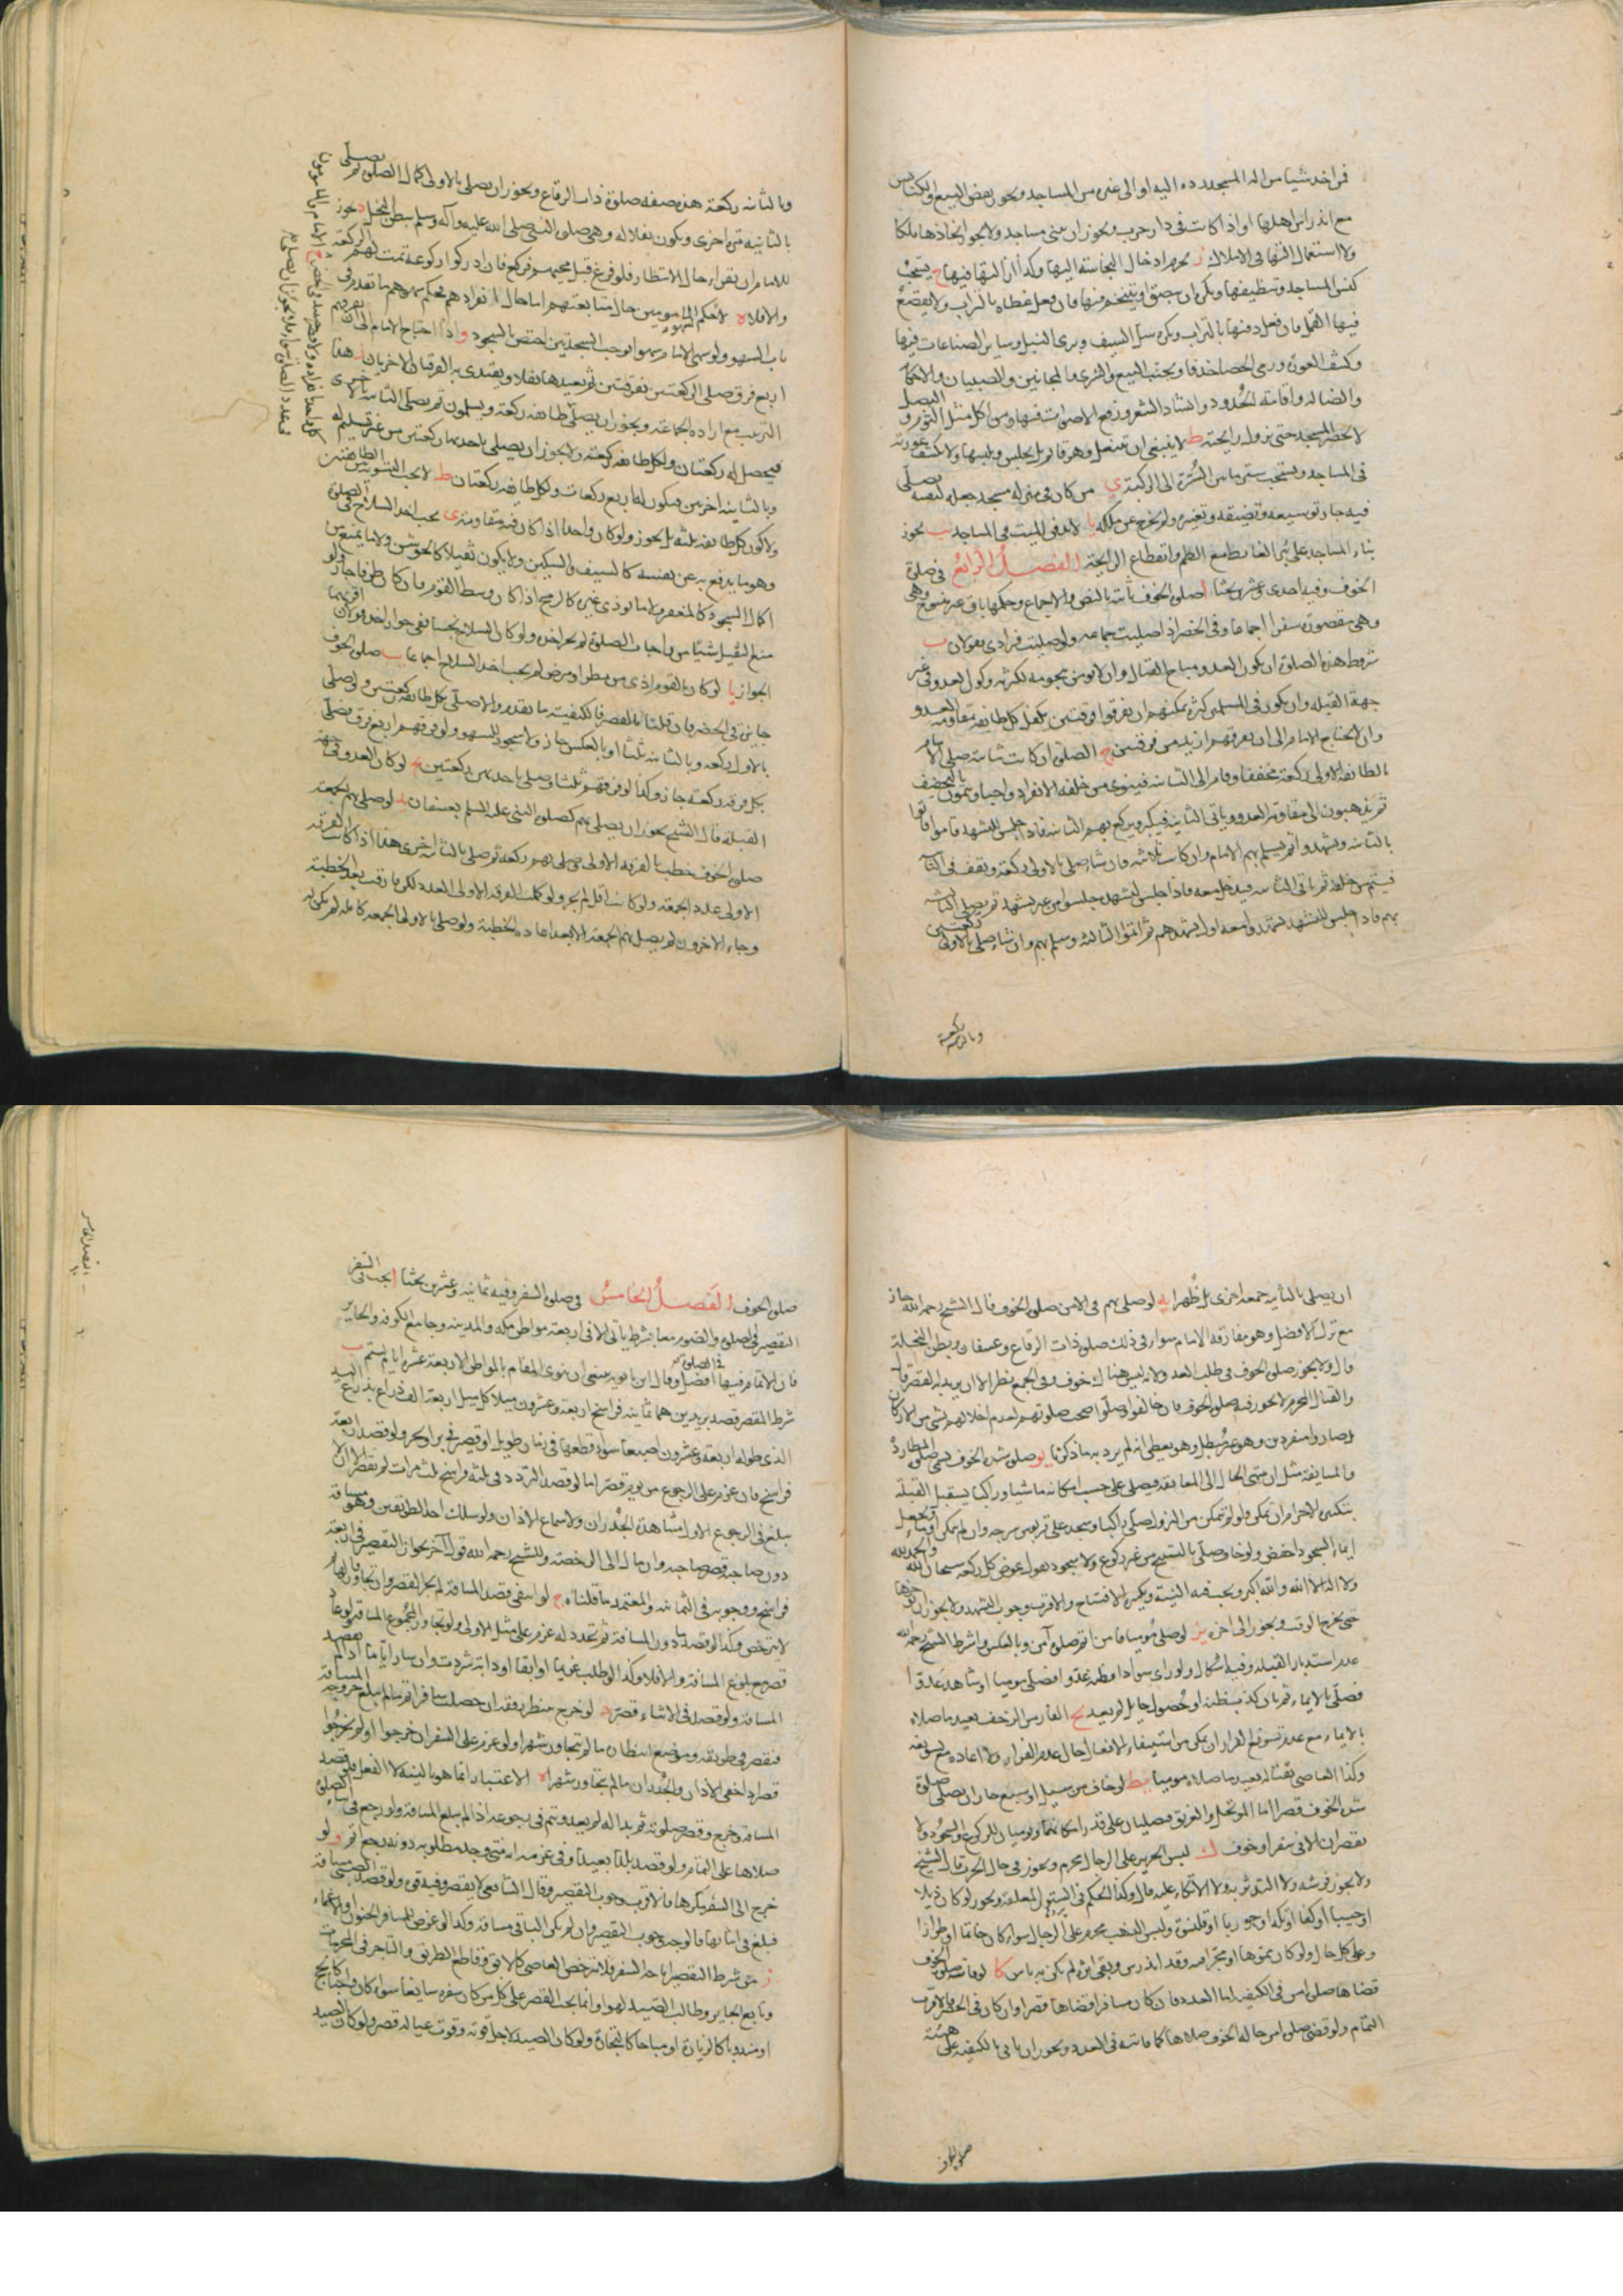 فمن اخذ شيئا من الة المسجد رده اليه او الى غيره من المساجد ويجوز نقض البيع والكنايس
مع اندراس اهلها او اذا كانت في دار حرب ويجوز ان يبنى مساجد ولا يجوز اتخاذها ملكا
ولا استعمال التها في الاملاك ز يحرم ادخال النجاسة اليها وكذا ازالتها فيها ح يستحب
كنس المساجد وتنظيفها ويكره ان يبصق او يتنخم فيها فان فعل غطاه بالتراب ولا يقصع
فيها القمل فان فعل دفنها بالتراب ويكره سل السيف وبرى النبل وساير الصناعات فيها
وكشف العورة ورمى الحصا خذفا ويجتنب البيع والشرى والمجانين والصبيان والاحكام
والضالة واقامة الحدود وانشاد الشعر ورفع الاصوات فيها ومن اكل مثل الثوم والبصل
لا يحضر المسجد حتى تزول رايحته ط لا ينبغي ان يتنعل وهو قايم بل يجلس ويلبسها ولا يكشف عورته
في المساجد ويستحب ستر ما بين السرة الى الركبة ي من كان في منزله مسجد جعله لنفسه يصلي
فيه جاز توسيعه وتضيقه وتغييره ولم يخرج عن ملكه يا لا يدفن الميت في المساجد يب يجوز
بناء المساجد على بئر الغايط مع الطم وانقطاع الرايحة الفصل الرابع في صلوة
الخوف وفيه احدى عشرون بحثا ا صلوة الخوف ثابتة بالنص والاجماع وحكمها باق غير منسوخ وهي
وهي مقصورة سفرا اجماعا وفي الحضر اذا صليت جماعة ولو صليت فرادى فقولان ب
شروط هذه الصلوة ان يكون العدو مباح القتال وان لا يؤمن هجومه لكثرته وكون العدو في غير
جهة القبلة وان يكون في المسلمين كثرة يمكنهم ان يفرقوا فرقتين يكفل كل طايفة بمقاومة العدو
وان لا يحتاج الامام الى ان يفرقهم ازيد من فرقتين ج الصلوة ان كانت ثنائية صلى الامام
بالطايفة الاولى ركعة مخففا وقام الى الثانية فينوي من خلفه الانفراد واجبا ويتمون بالتخفيف
ثم يذهبون الى مقاومة العدو وياتي الثانية فيكبر ويركع بهم الثانية فاذا جلس للتشهد قاموا فاتوا
بالثانية وتشهدوا ثم يسلم بهم الامام وان كانت ثلاثية فان شاء صلى بالاولى ركعة ويقف في الثانية
فيتم من خلفه ثم ياتي الثانية فيدخل معه فاذا جلس لتشهده جلسوا من غير تشهد ثم يصلي الثالثة
بهم فاذا جلس للتشهد تشهدوا معه اول تشهدهم ثم اتموا الثالثة وسلم بهم وان شاء صلى بالاولى ركعتين
وبالثانية ركعة
وبالثانية ركعة هذه صفة صلوة ذات الرقاع ويجوز ان يصلي بالاولى كمال الصلوة ثم يصلي
بالثانية مرة اخرى ويكون نفلا له وهي صلوة النبي صلى الله عليه وآله وسلم ببطن النخل د يجوز
للامام ان يقرا في حال الانتظار فلو فرغ قبل مجيئهم فركع فان ادركوا ركوعه تمت لهم الركعة
والا فلا ه لا حكم لسهو المامومين حال متابعتهم اما حال انفرادهم فحكم سهوهم ما تقدم في
باب السهو ولو سهى الامام سهوا يوجب السجدتين اختص بالسجود و اذا احتاج الامام الى ان يفرقهم
اربع فرق صلى الركعتين بفرقتين ثم يعيدها نفلا ويقتدي به الفرقتان الاخريان هذا
الترتيب مع ارادة الجماعة ويجوز ان يصلي طايفة ركعة ويسلمون ثم يصلي الثانية باخرى
فيحصل له ركعتان ولكل طايفة ركعة ولا يجوز ان يصلي باحديهما ركعتين من غير تسليم
وبالثانية اخرين فيكون له اربع ركعات ولكل طايفة ركعتان ط لا يجب التسوية بين الطايفتين
ولا كون كل طايفة ثلثة بل يجوز ولو كان واحدا اذا كان فيه مقاومة ي يجب اخذ السلاح في الصلوة
وهو ما يدفع به عن نفسه كالسيف والسكين ولا يكون ثقيلا كالجوشن ولا ما يمنع من
اكمال السجود كالمغفر ولا ما يوذي غيره كالرمح اذا كان وسط القوم فان كان طرفا جاز ولو
منع الثقيل شيئا من واجبات الصلوة لم يجز اخذه ولو كان السلاح نجسا ففي جواز اخذه قولان اقربهما
الجواز يا لو كان بالقوم اذى من مطر او مرض لم يجب اخذ السلاح اجماعا يب صلوة الخوف
جايزة في الحضر فان قلنا بالقصر فالكيفية ما تقدم والا صلى بكل طايفة ركعتين ولو صلى
بالاولى ركعة وبالثانية ثلثا او بالعكس جاز ولا سجود للسهو ولو فرقهم اربع فرق فصلى
بكل فرقة ركعة جاز وكذا لو فرقهم ثلثا وصلى باحديهن ركعتين يج لو كان العدو في جهة
القبلة قال الشيخ يجوز ان يصلي بهم كصلوة النبي عليه السلم بعسفان يد لو صلى بهم الجمعة
صلوة الخوف خطب بالفرقة الاولى وصلى بهم ركعة ثم صلى بالثانية اخرى هذا اذا كانت الفرقة
الاولى عدد الجمعة ولو كانت اقل لم يجز ولو كملت الفرقة الاولى العدد لكن فارقت بعد الخطبة
وجاء الاخرون لم يصل بهم الجمعة الا بعد اعادة الخطبة ولو صلى بالاولى الجمعة كاملة لم يكن له
ان يصلي بالثانية جمعة اخرى بل ظهرا يه لو صلى بهم في الامن صلوة الخوف قال الشيخ رحمه الله جاز
مع ترك الافضل وهو مفارقة الامام سواء في ذلك صلوة ذات الرقاع وعسفان وبطن النخلة
قال ولا يجوز صلوة الخوف في طلب العدو لانه ليس هناك خوف وفي الجمع نظر الا ان يريد به القصر قال
والقتال المحرم لا يجوز فيه صلوة الخوف فان خالفوا وصلوا صحت صلوتهم لعدم اخلالهم بشي من الاركان
بل صاروا منفردين وهو غير مبطل وهو يعطي انه لم يرد به ما ذكرنا يو صلوة شدة الخوف تسمى صلوة المطاردة
والمسايفة مثل ان ينتهي الحال الى المعانقة فيصلي على حسب امكانه ماشيا وراكبا يستقبل القبلة
بتكبيرة الاحرام ان تمكن ولو لم يتمكن من النزول صلى راكبا وسجد على قربوس سرجه وان لم يتمكن اومأ ويجعل
ايماء السجود اخفض ولو خاف صلى بالتسبيح من غير ركوع ولا سجود يقول عوض كل ركعة سبحان الله والحمد لله
ولا اله الا الله والله اكبر ويجب فيه النية وتكبيرة الافتتاح والاقرب وجوب التشهد ولا يجوز ان يؤخرها
حتى يخرج الوقت ويجوز الى اخره يز لو صلى موميا فامن اتم صلوة آمن وبالعكس واشترط الشيخ رحمه الله
عدم استدبار القبلة وفيه اشكال ولو راى سوادا فظنه عدوا فصلى موميا او شاهد عدوا
فصلى بالايماء ثم بان كذب ظنه او حصول حايل لم يعد يح الفار من الزحف يعيد ما صلاه
بالايماء مع عدم تسويغ الفرار ان تمكن من استيفاء الافعال حال عدم الفرار ولا اعادة مع تسويغه
وكذا العاصي بقتاله يعيد ما صلاه موميا يط لو خاف من سيل او سبع جاز ان يصلي صلوة
شدة الخوف قصرا اما الموتحل والغريق فيصليان على قدر امكانهما ويوميان للركوع والسجود ولا
يقصران الا في سفر او خوف ك لبس الحرير على الرجال محرم ويجوز في حال الحرب قال الشيخ
ولا يجوز فرشه ولا التدثر به ولا الاتكاء عليه قال وكذا الحكم في الستور المعلقة ويجوز لو كان ذيلا
او جيبا او كفا او تكة او جوربا او قلنسوة ولبس الذهب محرم على الرجال سواء كان خاتما او طرازا
وعلى كل حال ولو كان مموها او مجرا فيه وقد اندرس وبقى اثره لم يكن به باس كا لو فاته صلوة الخوف
قضاها صلوة امن في الكيفية اما العدد فان كان مسافرا قضاها قصرا وان كان في الحضر فالاقرب
التمام ولو قضى صلوة امن حالة الخوف صلاها كما فاتته في العدد ويجوز ان ياتي بالكيفية على هيئة
صلوة الخوف
صلوة الخوف الفصل الخامس في صلوة السفر وفيه ثمانية وعشرين بحثا ا يجب في السفر
التقصير في الصلوة والصوم معا بشرط ياتي الا في اربعة مواطن مكة والمدينة وجامع الكوفة والحاير
فان الاتمام فيها في الصلوة افضل وقال ابن بابويه يعني ان ينوي المقام بالمواطن الاربعة عشرة ايام ليتم ب
شرط القصر قصد بريدين هما ثمانية فراسخ اربعة وعشرون ميلا كل ميل اربعة الف ذراع بذراع اليد
الذي طوله اربعة وعشرون اصبعا سواء قطعها في زمان طويل او قصير في بر او بحر ولو قصد اربعة
فراسخ فان عزم على الرجوع من يومه قصر اما لو قصد التردد في ثلثة فراسخ ثلث مرات لم يقصر الا ان
يبلغ في الرجوع الاول مشاهدة الجدران ولا سماع الاذان ولو سلك احد الطريقين وهو مسافة
دون صاحبه قصر صاحبه وان مال الى الرخصة وللشيخ رحمه الله قول آخر بجواز التقصير في اربعة
فراسخ ووجوبه في الثمانية والمعتمد ما قلناه ج لو انتفى قصد المسافة لم يجز القصر وان تجاوزها
لا يترخص وكذا لو قصد ما دون المسافة ثم تجدد له عزم على مثل الاولى ولو تجاوز المجموع المسافة
قصر مع بلوغ المسافة والا فلا وكذا لو طلب غريما او ابقا او دابة شردت وان سار اياما اذا لم يقصد
المسافة ولو قصد في الاثناء قصر د لو خرج منتظرا رفقة ان حصلت سافر اتم ما لم يبلغ خروجه المسافة
فيقصر في طريقه وموضع انتظاره ما لم يتجاوز شهرا ولو عزم على السفر ان خرجوا او لم يخرجوا
قصر اذا خفي الاذان والجدران ما لم يتجاوز شهرا ه الاعتبار انما هو بالنية لا الفعل فلو قصد
المسافة وخرج وقصر صلوته ثم بدا له لم يعد ويتم في رجوعه اذا لم يبلغ المسافة ولو رجع في اثناء الصلوة
صلاها على التمام ولو قصد بلدا بعيدا وفي عزمه انه متى وجد مطلوبه دونه رجع اتم و لو
خرج الى السفر مكرها فالاقرب وجوب التقصير وقال الشافعي لا يقصر وفيه قوة ولو قصد الصبي مسافة
فبلغ في اثنائها فالوجه وجوب التقصير وان لم يكن الباقي مسافة وكذا لو عرض للمسافر الجنون او الاغماء
ز من شرط التقصير اباحة السفر فلا يترخص العاصي كالابق وقاطع الطريق والتاجر في المحرمات
وتابع الجاير وطالب الصيد لهوا وانما يجب القصر على كل من كان سفره سايغا سواء كان واجبا كالحج
او مندوبا كالزيارة او مباحا كالتجارة ولو كان الصيد لاجل قوته وقوت عياله قصر ولو كان الصيد